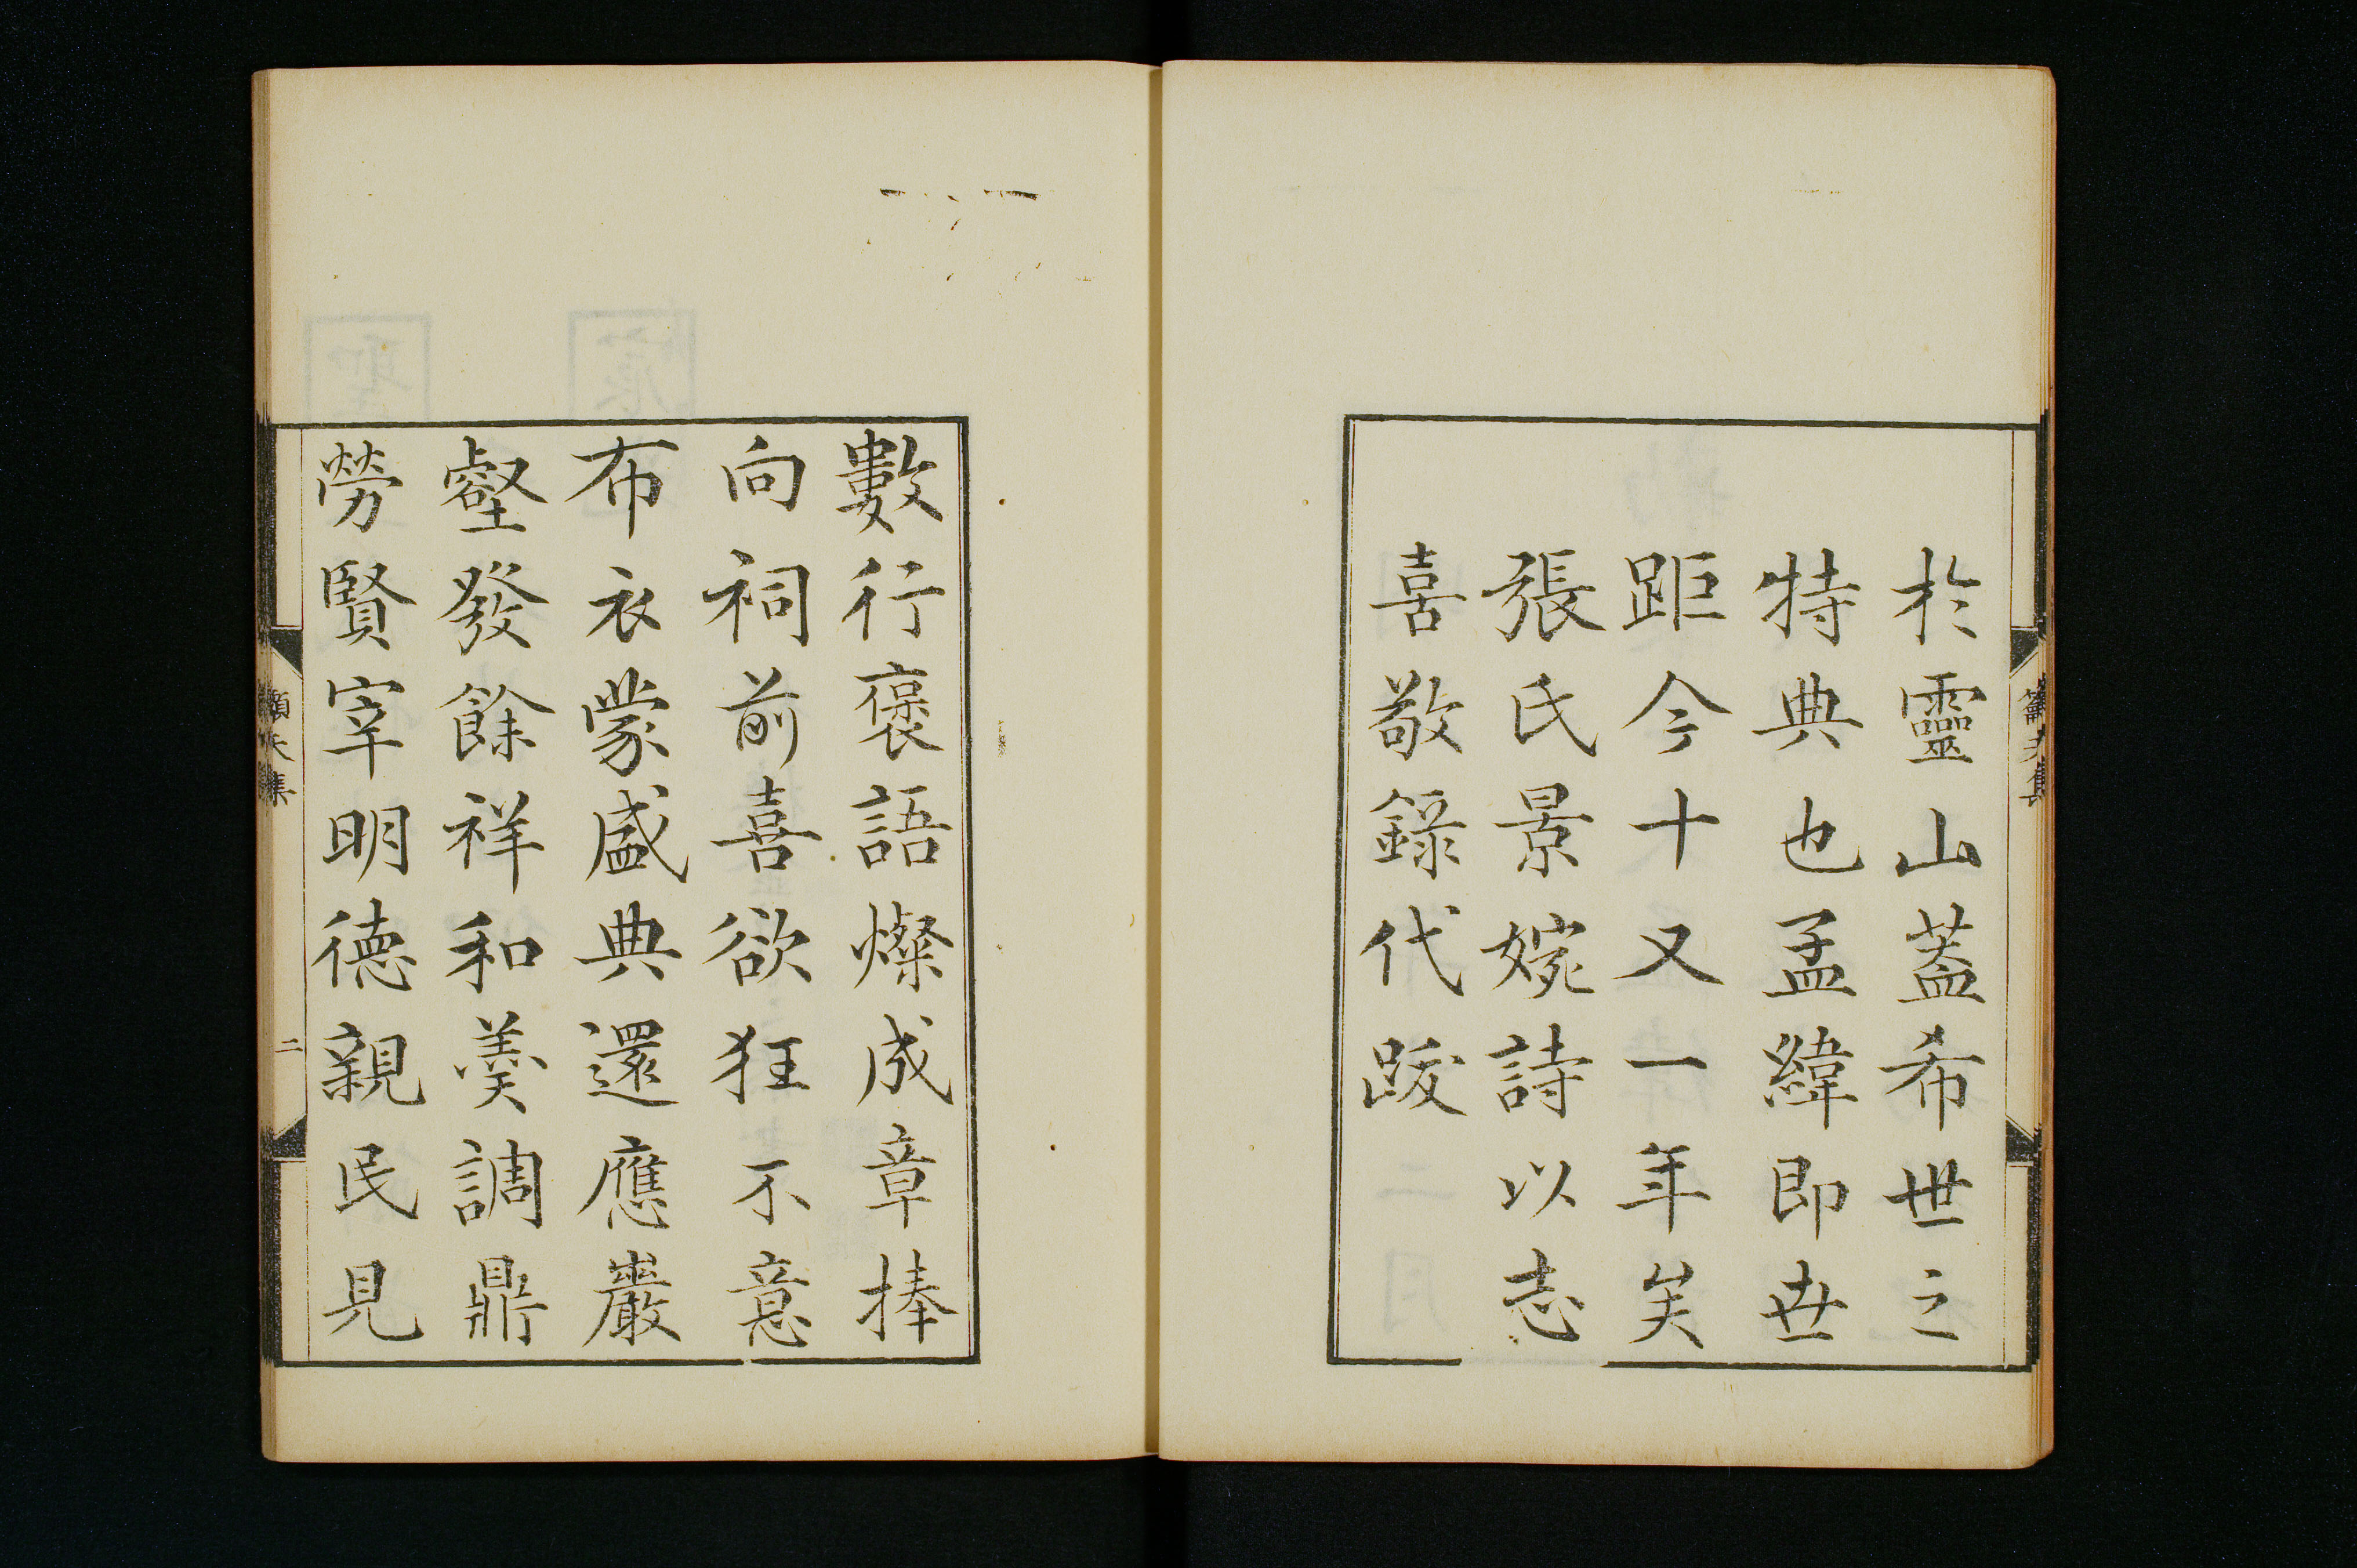 於靈山蓋希世之
特典也孟緯即世
距今十又一年矣
張氏景婉詩以志
喜敬錄代跋
數行褒語燦成章捧
向祠前喜欲狂不意
布衣蒙盛典還應巖
壑發餘祥和羹調鼎
勞賢宰明德親民見
二